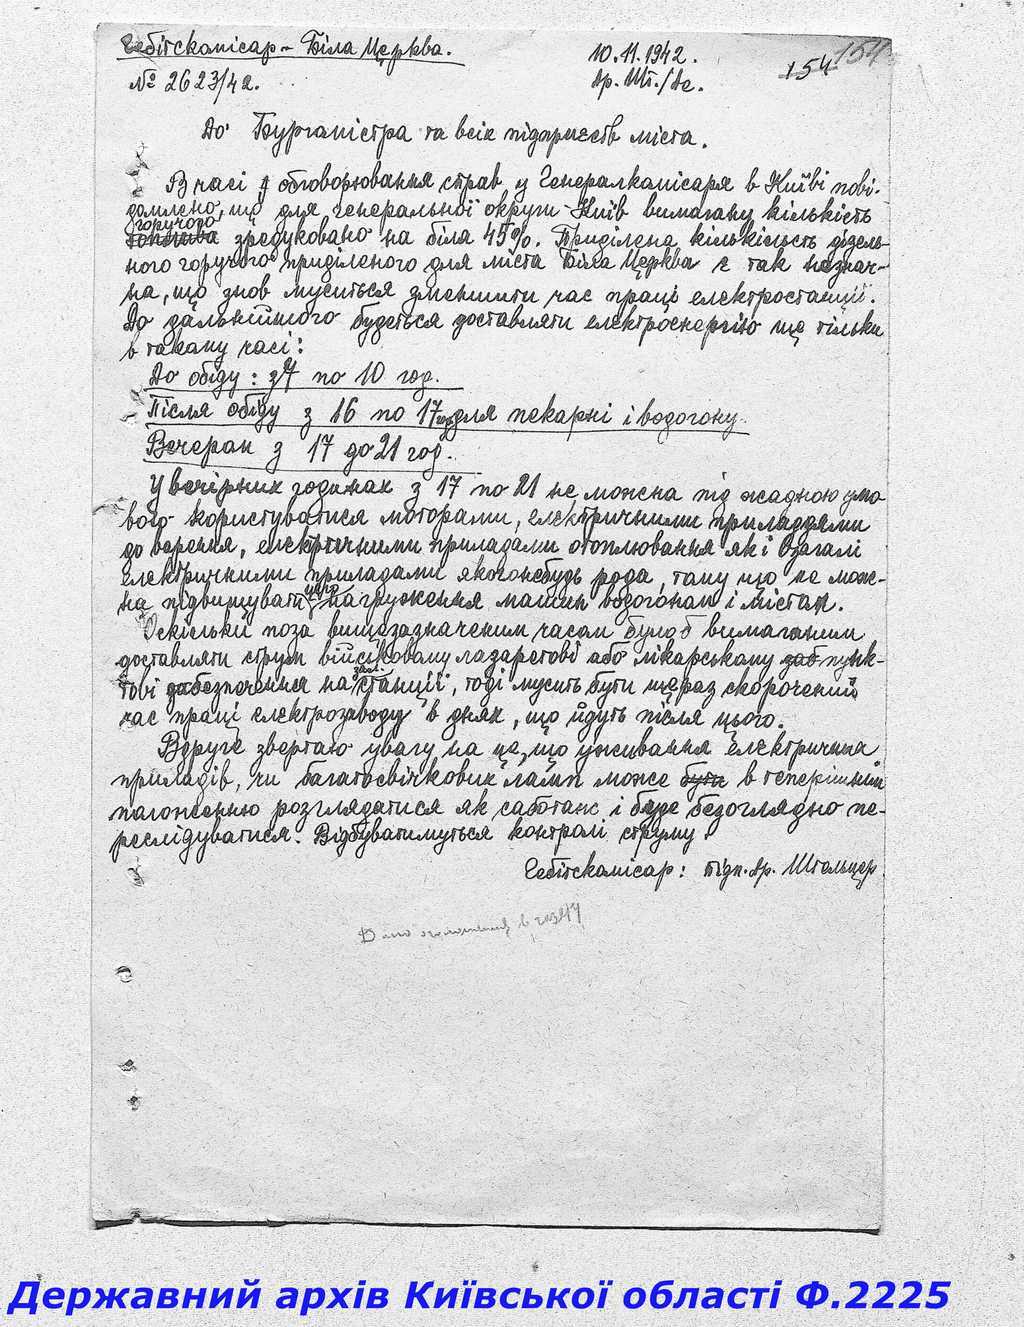 Гебітскомісар - Біла Церква.
10.11.1942.
154 154
№ 2623/42.
Др. Шт./Де.
До Бургомістра та всіх підприємств міста.
В часі обговорювання справ у Генералкомісаря в Київі пові-
домлено, що для генеральної округи Київ вимагану кількість
горучого
топлива зредуковано на біля 45%. Приділена кількість дізель-
ного горучого приділеного для міста Біла Церква є так незнач-
на, що знов муситься зменшити час праці електростанції.
До дальнійшого будеться доставляти електроенергію ще тільки
в такому часі:
До обіду: з 7 по 10 год.
Після обіду з 16 по 17 для пекарні і водогону.
Вечером з 17 до 21 год.
У вечірних годинах з 17 по 21 не можна під жадною умо
вою користуватися моторами, електричними приладдями
до варення, електричними приладами отоплювання як і взагалі
електричними приладами якогонебудь рода, тому що не мож-
на підвищувати нагруження машин водогоном і містом.
Оскільки поза вищезазначеним часом булоб вимаганим
доставляти струм військовому лазаретові або лікарському пунк-
тові забезпечення на станції, тоді мусить бути щераз скорочений
час праці електрозаводу в днях, що йдуть після цього.
Вдруге звертаю увагу на це, що уживання електричних
приладів, чи багатосвічкових ламп може бути в теперішним
положенню розглядатися як саботаж і буде безоглядно пе-
реслідуватися. Відбуватимуться контролі струму
Гебітскомісар: підп. др. Штельцер.
Державний архів Київської області Ф.2225